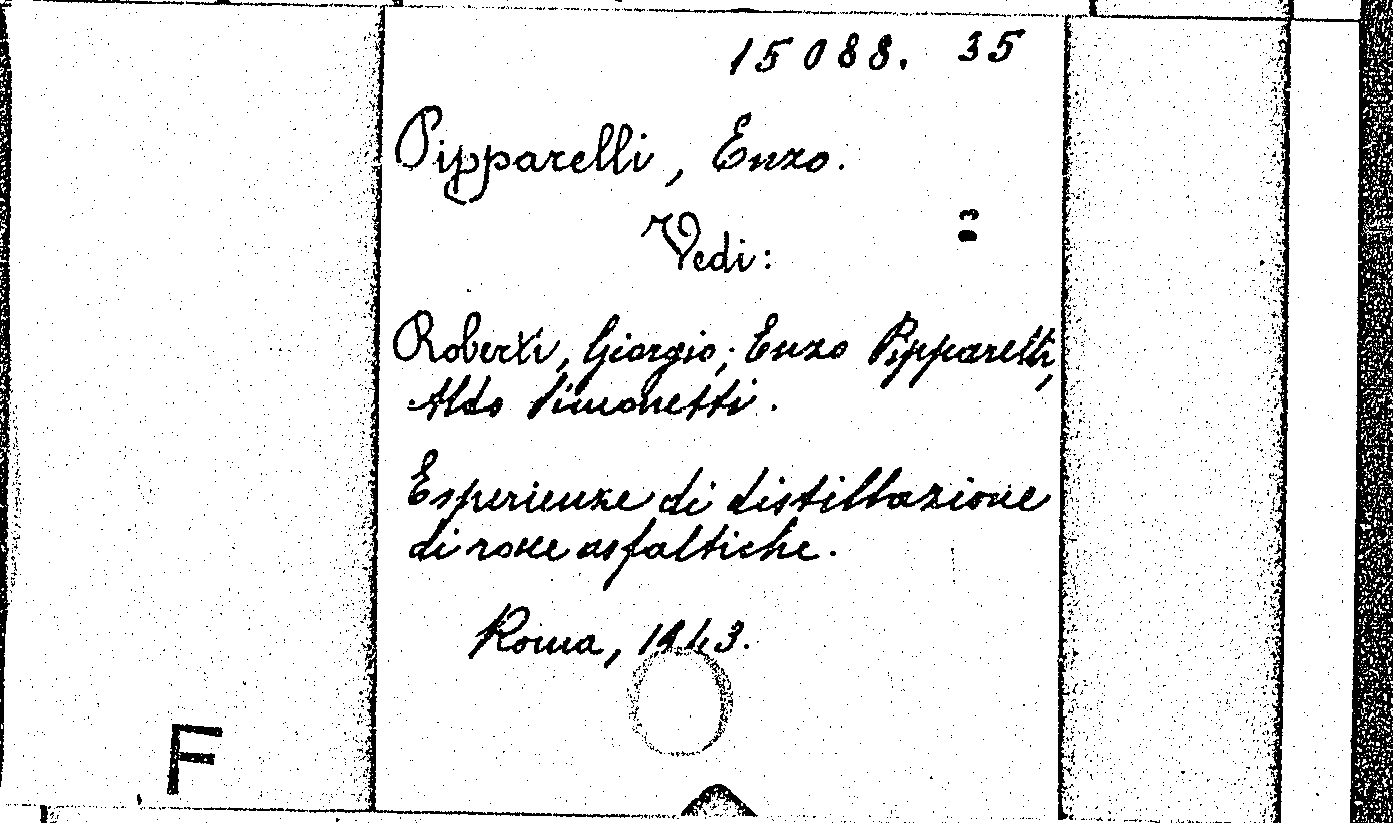 15088. 35
Pipparelli, Enzo.
Vedi:
Roberti, Giorgio; Enzo Pipparelli,
Aldo Simonetti.
Esperienze di distillazione
di rocce asfaltiche.
Roma, 1943.
F